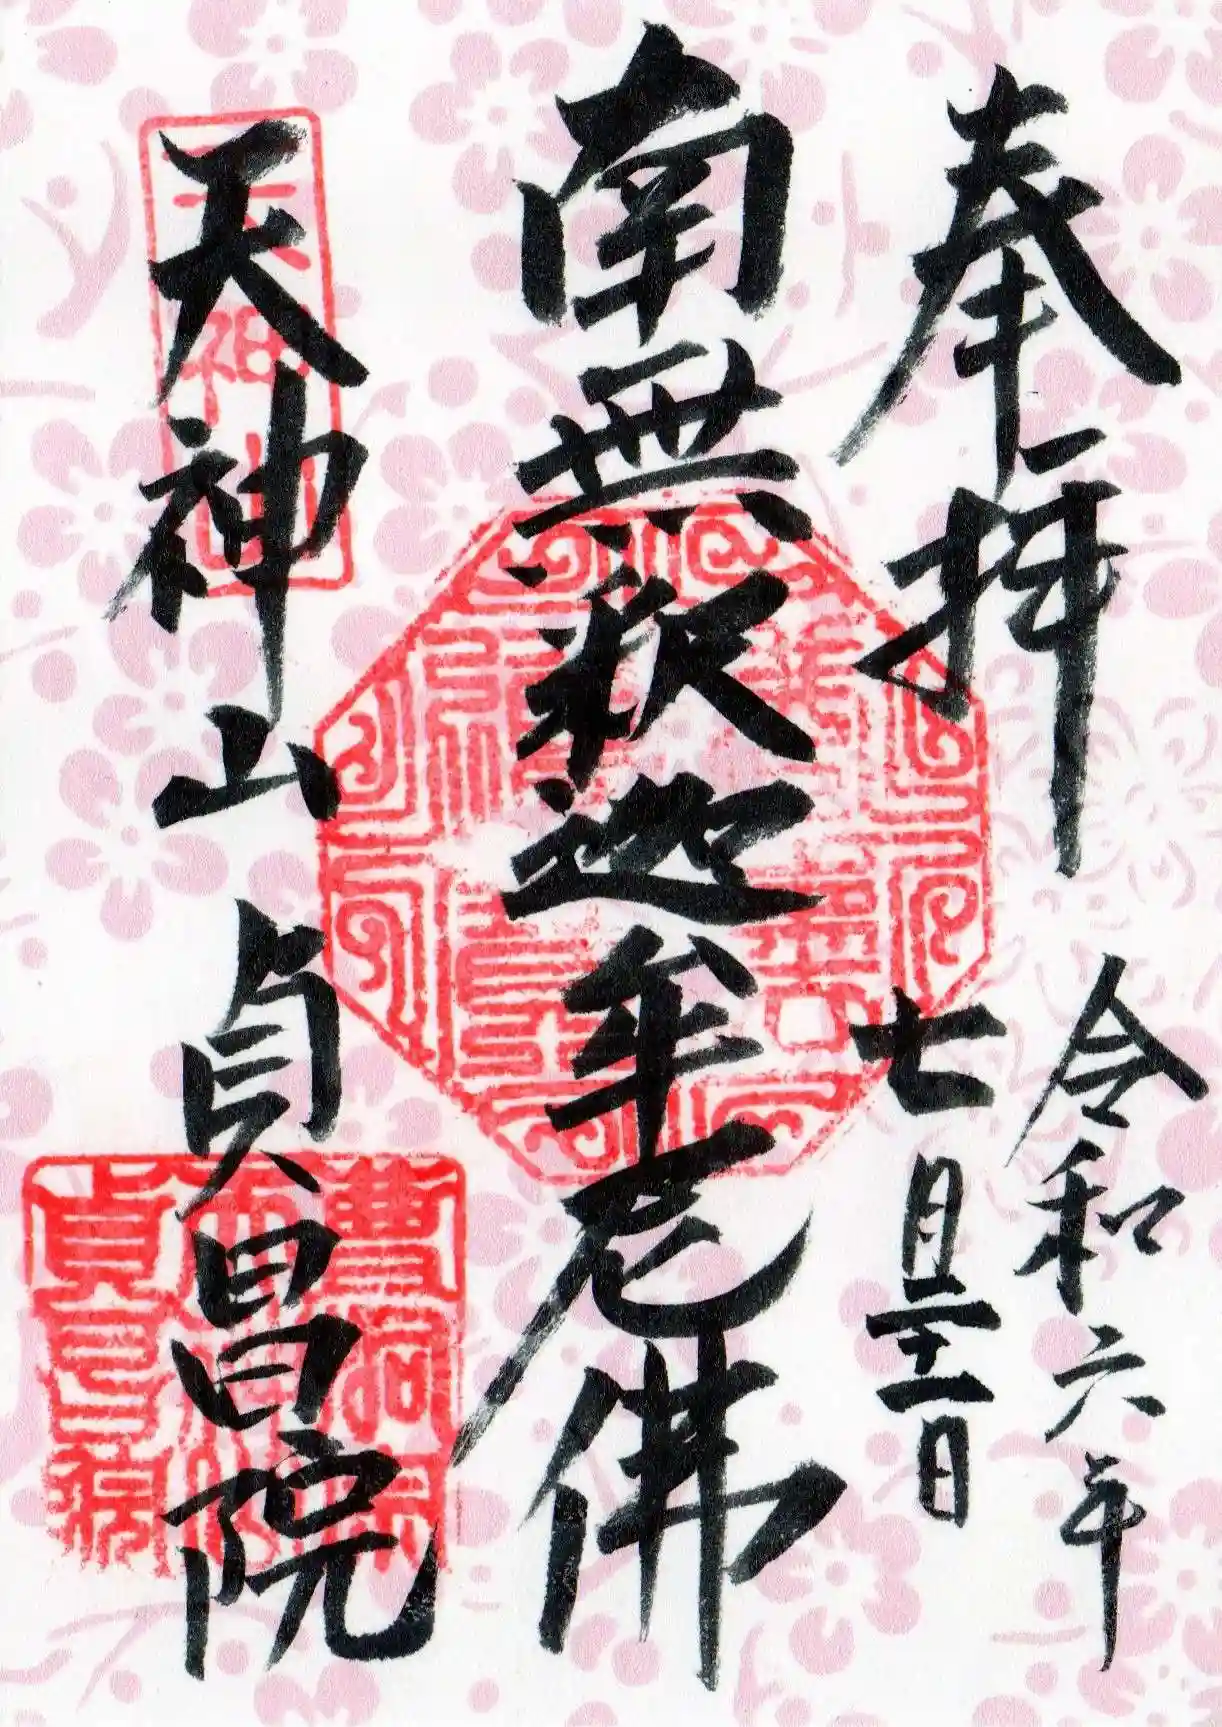 奉拝
令和六年
七月二十一日
南無釈迦牟尼佛
天神山 貞昌院
天神山